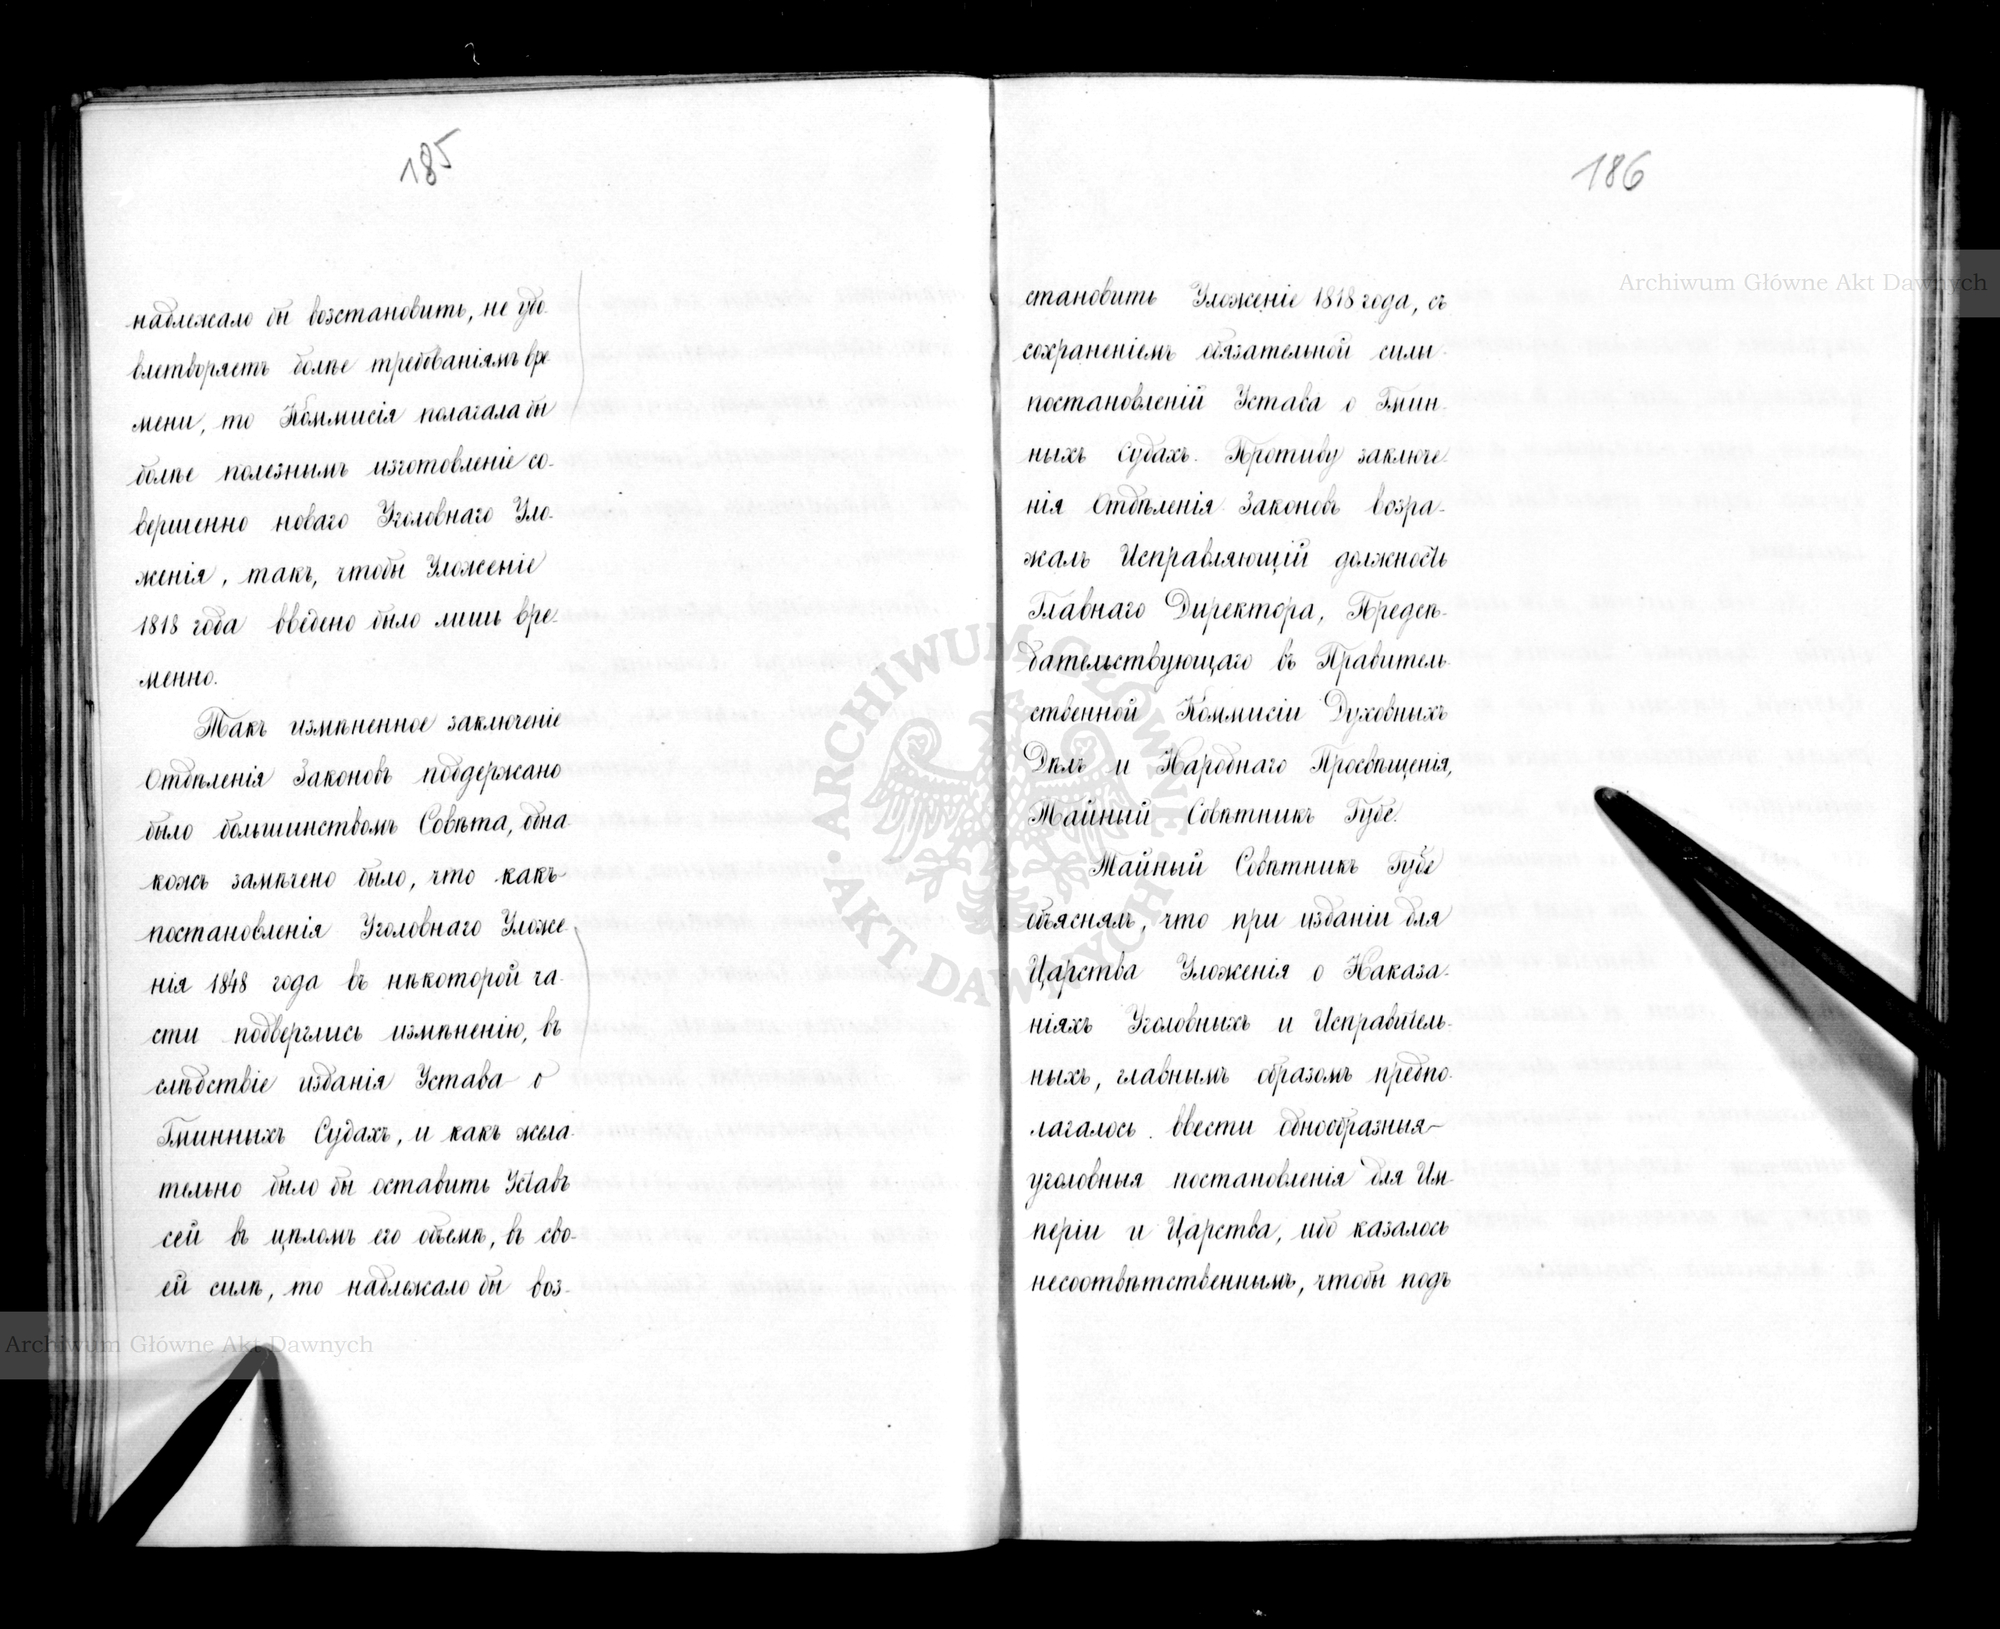 185
надлежало бы возстановить, не удо-
влетворяетъ болѣе требованіямъ вре-
мени, то Коммисія полагала бы
болѣе полезнымъ изготовленіе со-
вершенно новаго Уголовнаго Уло-
женія, такъ, чтобы Уложеніе
1818 года введено было лишь вре-
менно.
Такъ измѣненное заключеніе
Отдѣленія Законовъ поддержано
было большинствомъ Совѣта, одна-
кожъ замѣчено было, что какъ
постановленія Уголовнаго Уложе-
нія 1848 года въ нѣкоторой ча-
сти подверглись измѣненію, въ
слѣдствіе изданія Устава о
Гминныхъ Судахъ, и какъ жела-
тельно было бы оставить Уставъ
сей въ цѣломъ его объемѣ, въ сво-
ей силѣ, то надлежало бы воз-
186
становить Уложеніе 1818 года, съ
сохраненіемъ обязательной силы
постановленій Устава о Гмин-
ныхъ Судахъ. Противу заключе-
нія Отдѣленія Законовъ возра-
жалъ Исправляющій должность
Главнаго Директора, Предсѣ-
дательствующаго въ Правитель-
ственной Коммисіи Духовныхъ
Дѣлъ и Народнаго Просвѣщенія,
Тайный Совѣтникъ Губе.
Тайный Совѣтникъ Губе
объяснялъ, что при изданіи для
Царства Уложенія о Наказа-
ніяхъ Уголовныхъ и Исправитель-
ныхъ, главнымъ образомъ предпо-
лагалось ввести однообразныя
уголовныя постановленія для Им-
періи и Царства, ибо казалось
несоотвѣтственнымъ, чтобы подъ
Archiwum Główne Akt Dawnych
Archiwum Główne Akt Dawnych
ARCHIWUM GŁÓWNE AKT DAWNYCH